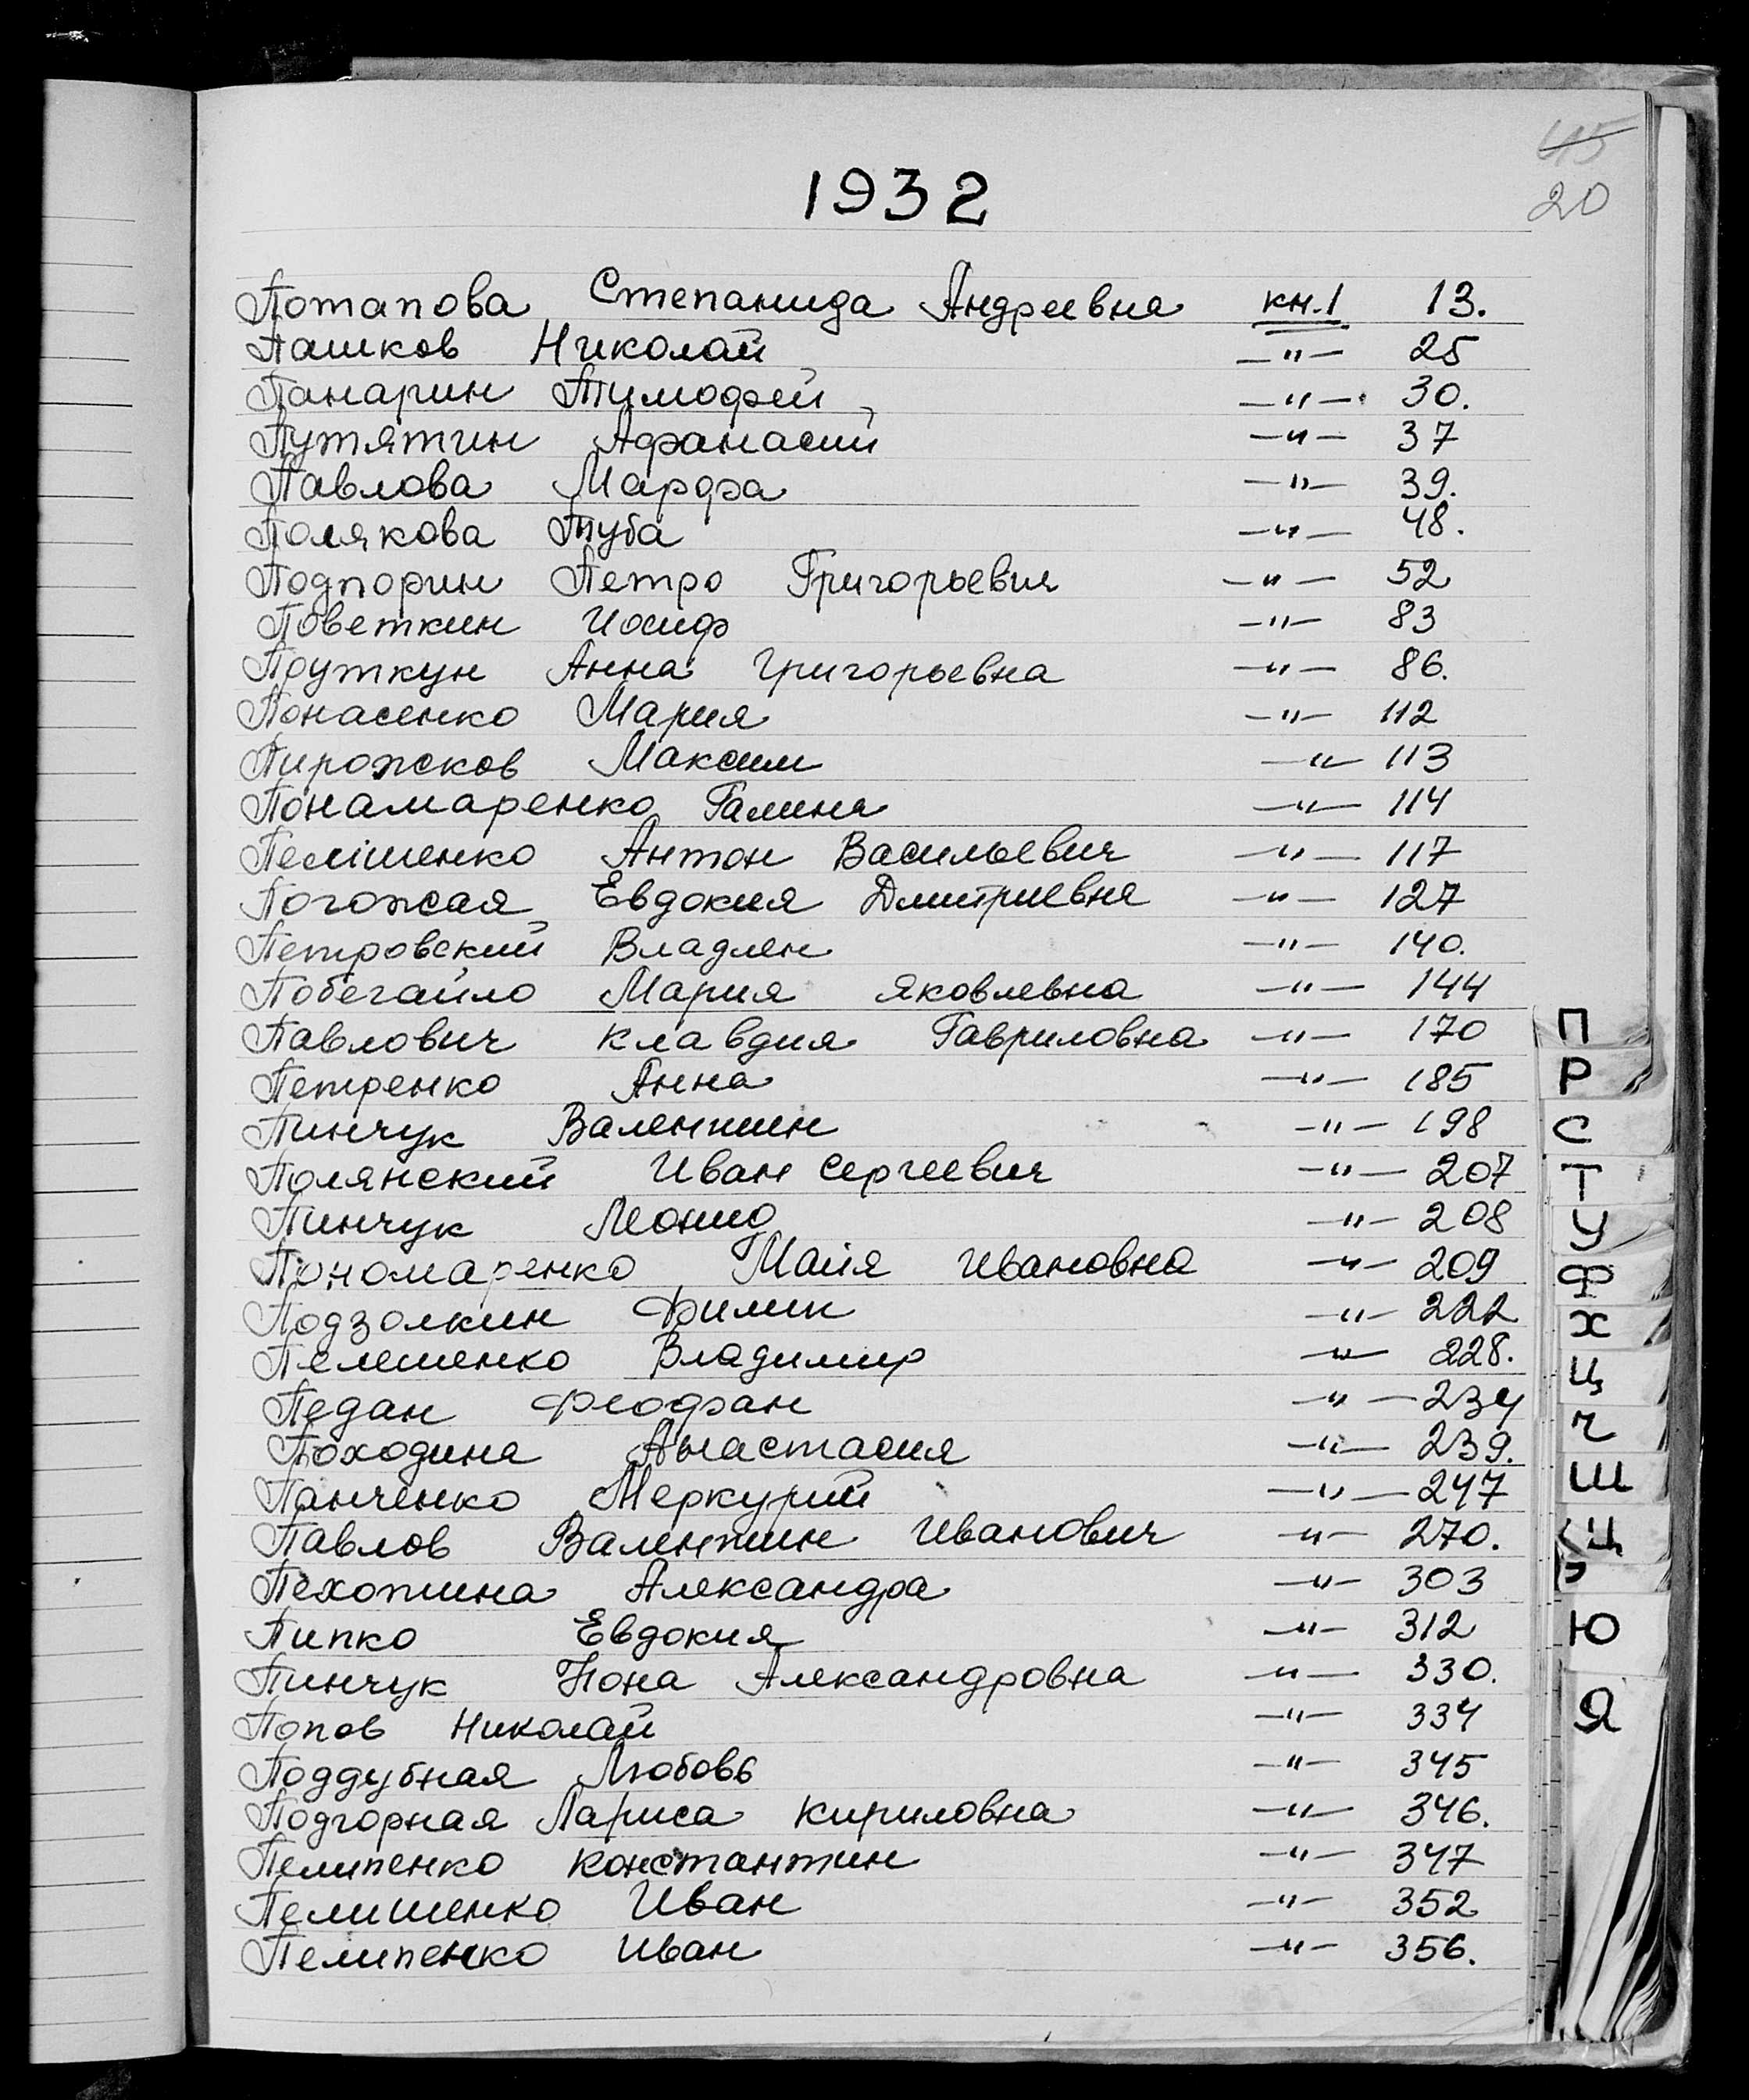 45
20
1932
Потапова Степанида Андреевна кн.1 13.
Пашков Николай —"— 25
Панарин Тимофей —"— 30.
Путятин Афанасий —"— 37
Павлова Марфа —"— 39.
Полякова Туба —"— 48.
Подпорин Петро Григорьевич —"— 52
Поветкин Иосиф —"— 83
Пруткун Анна Григорьевна —"— 86.
Понасенко Мария —"— 112
Пирожков Максим —"— 113
Понамаренко Галина —"— 114
Пелішенко Антон Васильевич —"— 117
Погожая Евдокия Дмитриевна —"— 127
Петровский Владлен —"— 140.
Побегайло Мария Яковлевна —"— 144
Павлович Клавдия Гавриловна —"— 170
Петренко Анна —"— 185
Пинчук Валентин —"— 198
Полянский Иван Сергеевич —"— 207
Пинчук Леонид —"— 208
Пономаренко Майя Ивановна —"— 209
Подзолкин Филип —"— 222
Пелешенко Владимир —"— 228.
Педан Феофан —"— 234
Походина Анастасия —"— 239.
Панченко Меркурий —"— 247
Павлов Валентин Иванович —"— 270.
Пехотина Александра —"— 303
Пипко Евдокия —"— 312
Пинчук Нона Александровна —"— 330.
Попов Николай —"— 334
Поддубная Любовь —"— 345
Подгорная Лариса Кириловна —"— 346.
Пелипенко Константин —"— 347
Пелишенко Иван —"— 352
Пелипенко Иван —"— 356.
П
Р
С
Т
У
Ф
Х
Ц
Ч
Ш
Щ
Э
Ю
Я